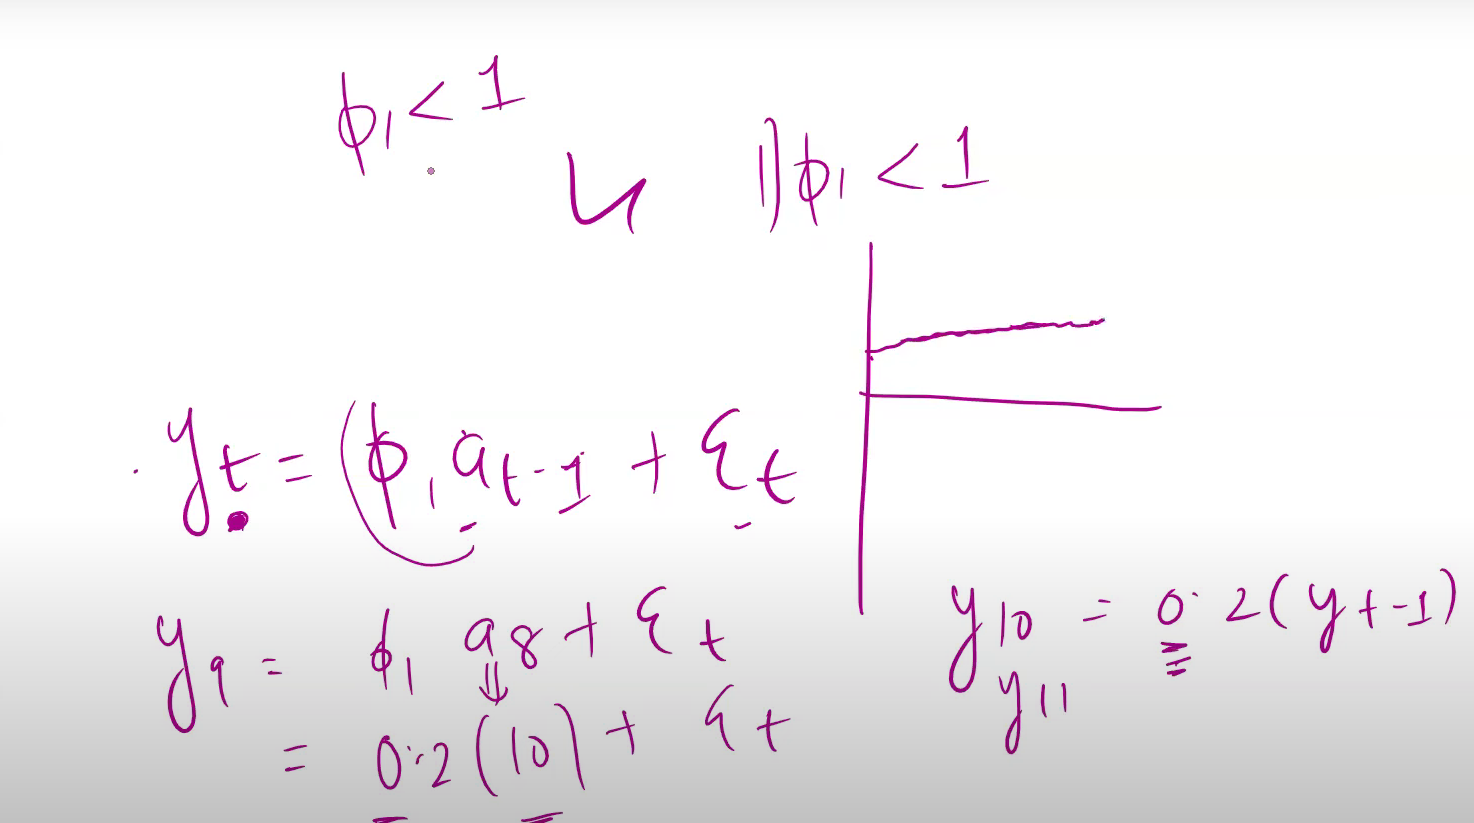 ϕ₁ < 1
1) ϕ₁ < 1
yₜ = (ϕ₁ aₜ₋₁ + εₜ
y₉ = ϕ₁ a₈ + εₜ
= 0.2(10) + εₜ
y₁₀ = 0.2(yₜ₋₁)
y₁₁